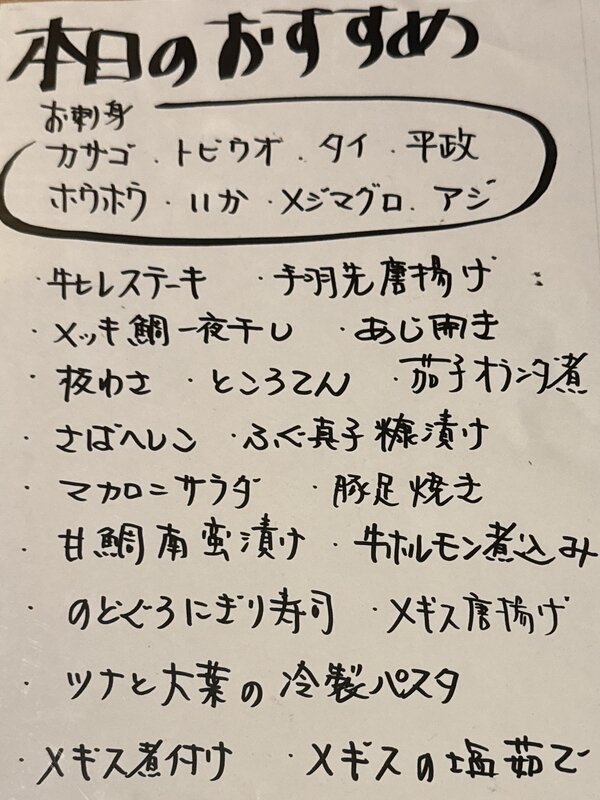 本日のおすすめ
お刺身
カサゴ．トビウオ．タイ．平政
ホウホウ・いか・メジマグロ．アジ
・牛ヒレステーキ ・手羽先唐揚げ
・メッキ鯛一夜干し ・あじ開き
・板わさ ・ところてん ・茄子オランダ煮
・さばへしこ ・ふぐ真子糠漬け
・マカロニサラダ ・豚足焼き
・甘鯛南蛮漬け ・牛ホルモン煮込み
・のどぐろにぎり寿司 ・メギス唐揚げ
・ツナと大葉の冷製パスタ
・メギス煮付け ・メギスの塩茹で